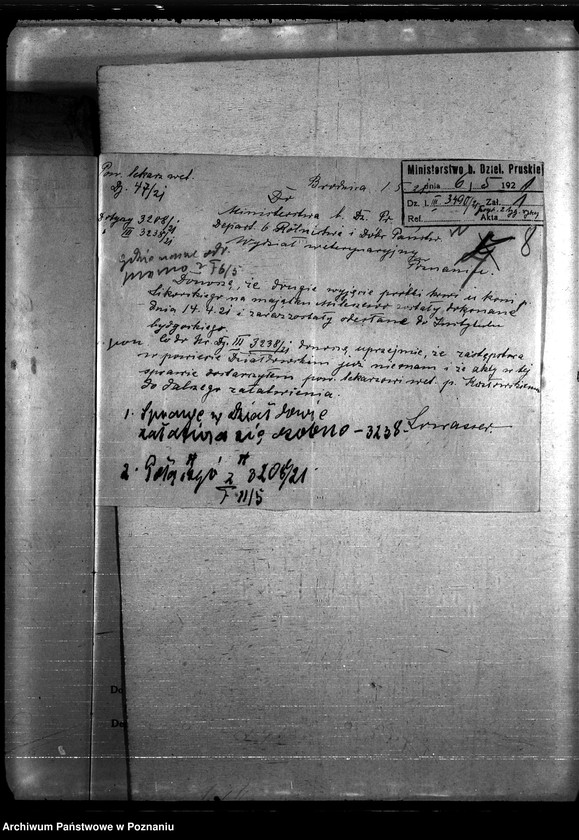 Pow. lekarz wet.
Dz. 47/21
Brodnica 1.5.21
Ministerstwo b. Dziel. Pruskiej
dnia 6/5 1921
Dz. l. III 3490/21 Zał. 1
Ref. Akta
8
Do
Ministerstwa b. Dz. Pr.
Depart. Rolnictwa i Dóbr Państw.
Wydział weterynaryjny
Poznaniu.
dotyczy 3208/21
i III 3238/21
6/5
Donoszę, że drugie wyjęcie próbki krwi u koni p.
Sikorskiego na majątku zostały dokonane
dnia 14.4.21 i zaraz zostały odesłane do Instytutu
bydgoskiego.
Co do Nr. Dz. III 3238/21 donoszę uprzejmie, że zastępstwa
w powiecie Działdowskim już nie mam i że akty w tej
sprawie dostarczyłem pow. lekarzowi wet. p. Kozłowskiemu
do dalszego załatwienia.
1. Sprawę w Działdowie
załatwia się osobno – 3238
2. 3208/21
11/5
Archiwum Państwowe w Poznaniu